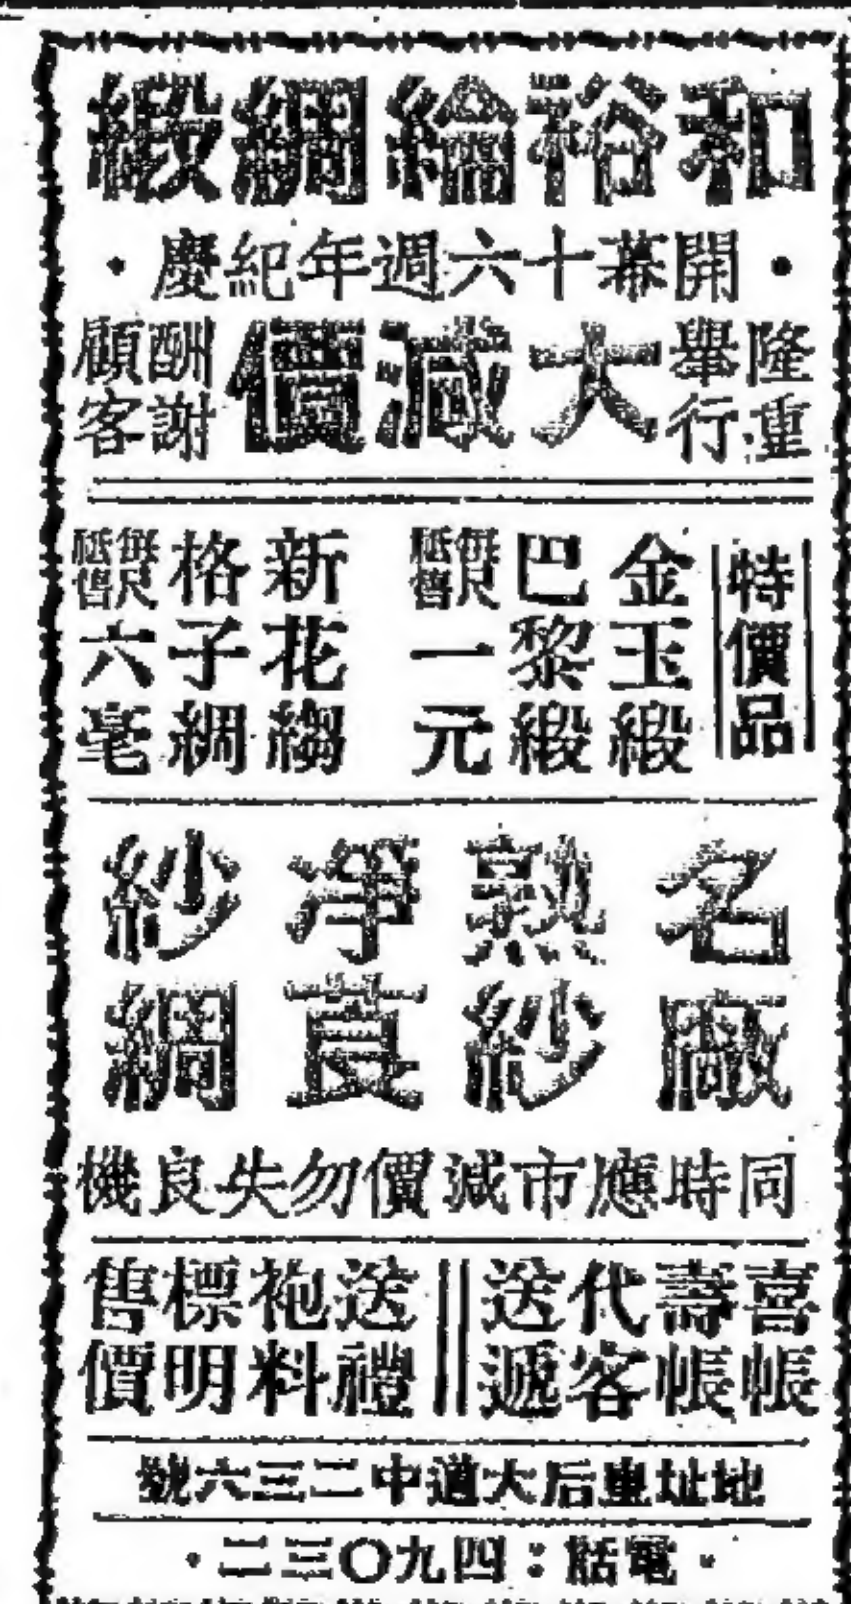 和裕綸綢緞
・開幕十六週年紀慶・
隆重舉行
大減價
酬謝顧客
特價品
金玉緞
巴黎緞
每尺祗售一元
新花縐
格子綢
每尺祗售六毫
名廠
熟紗
淨莨
紗綢
同時應市減價勿失良機
喜帳
壽帳
代客
送遞
送禮
袍料
標明
售價
地址皇后大道中二三六號
・電話:四九〇三二・